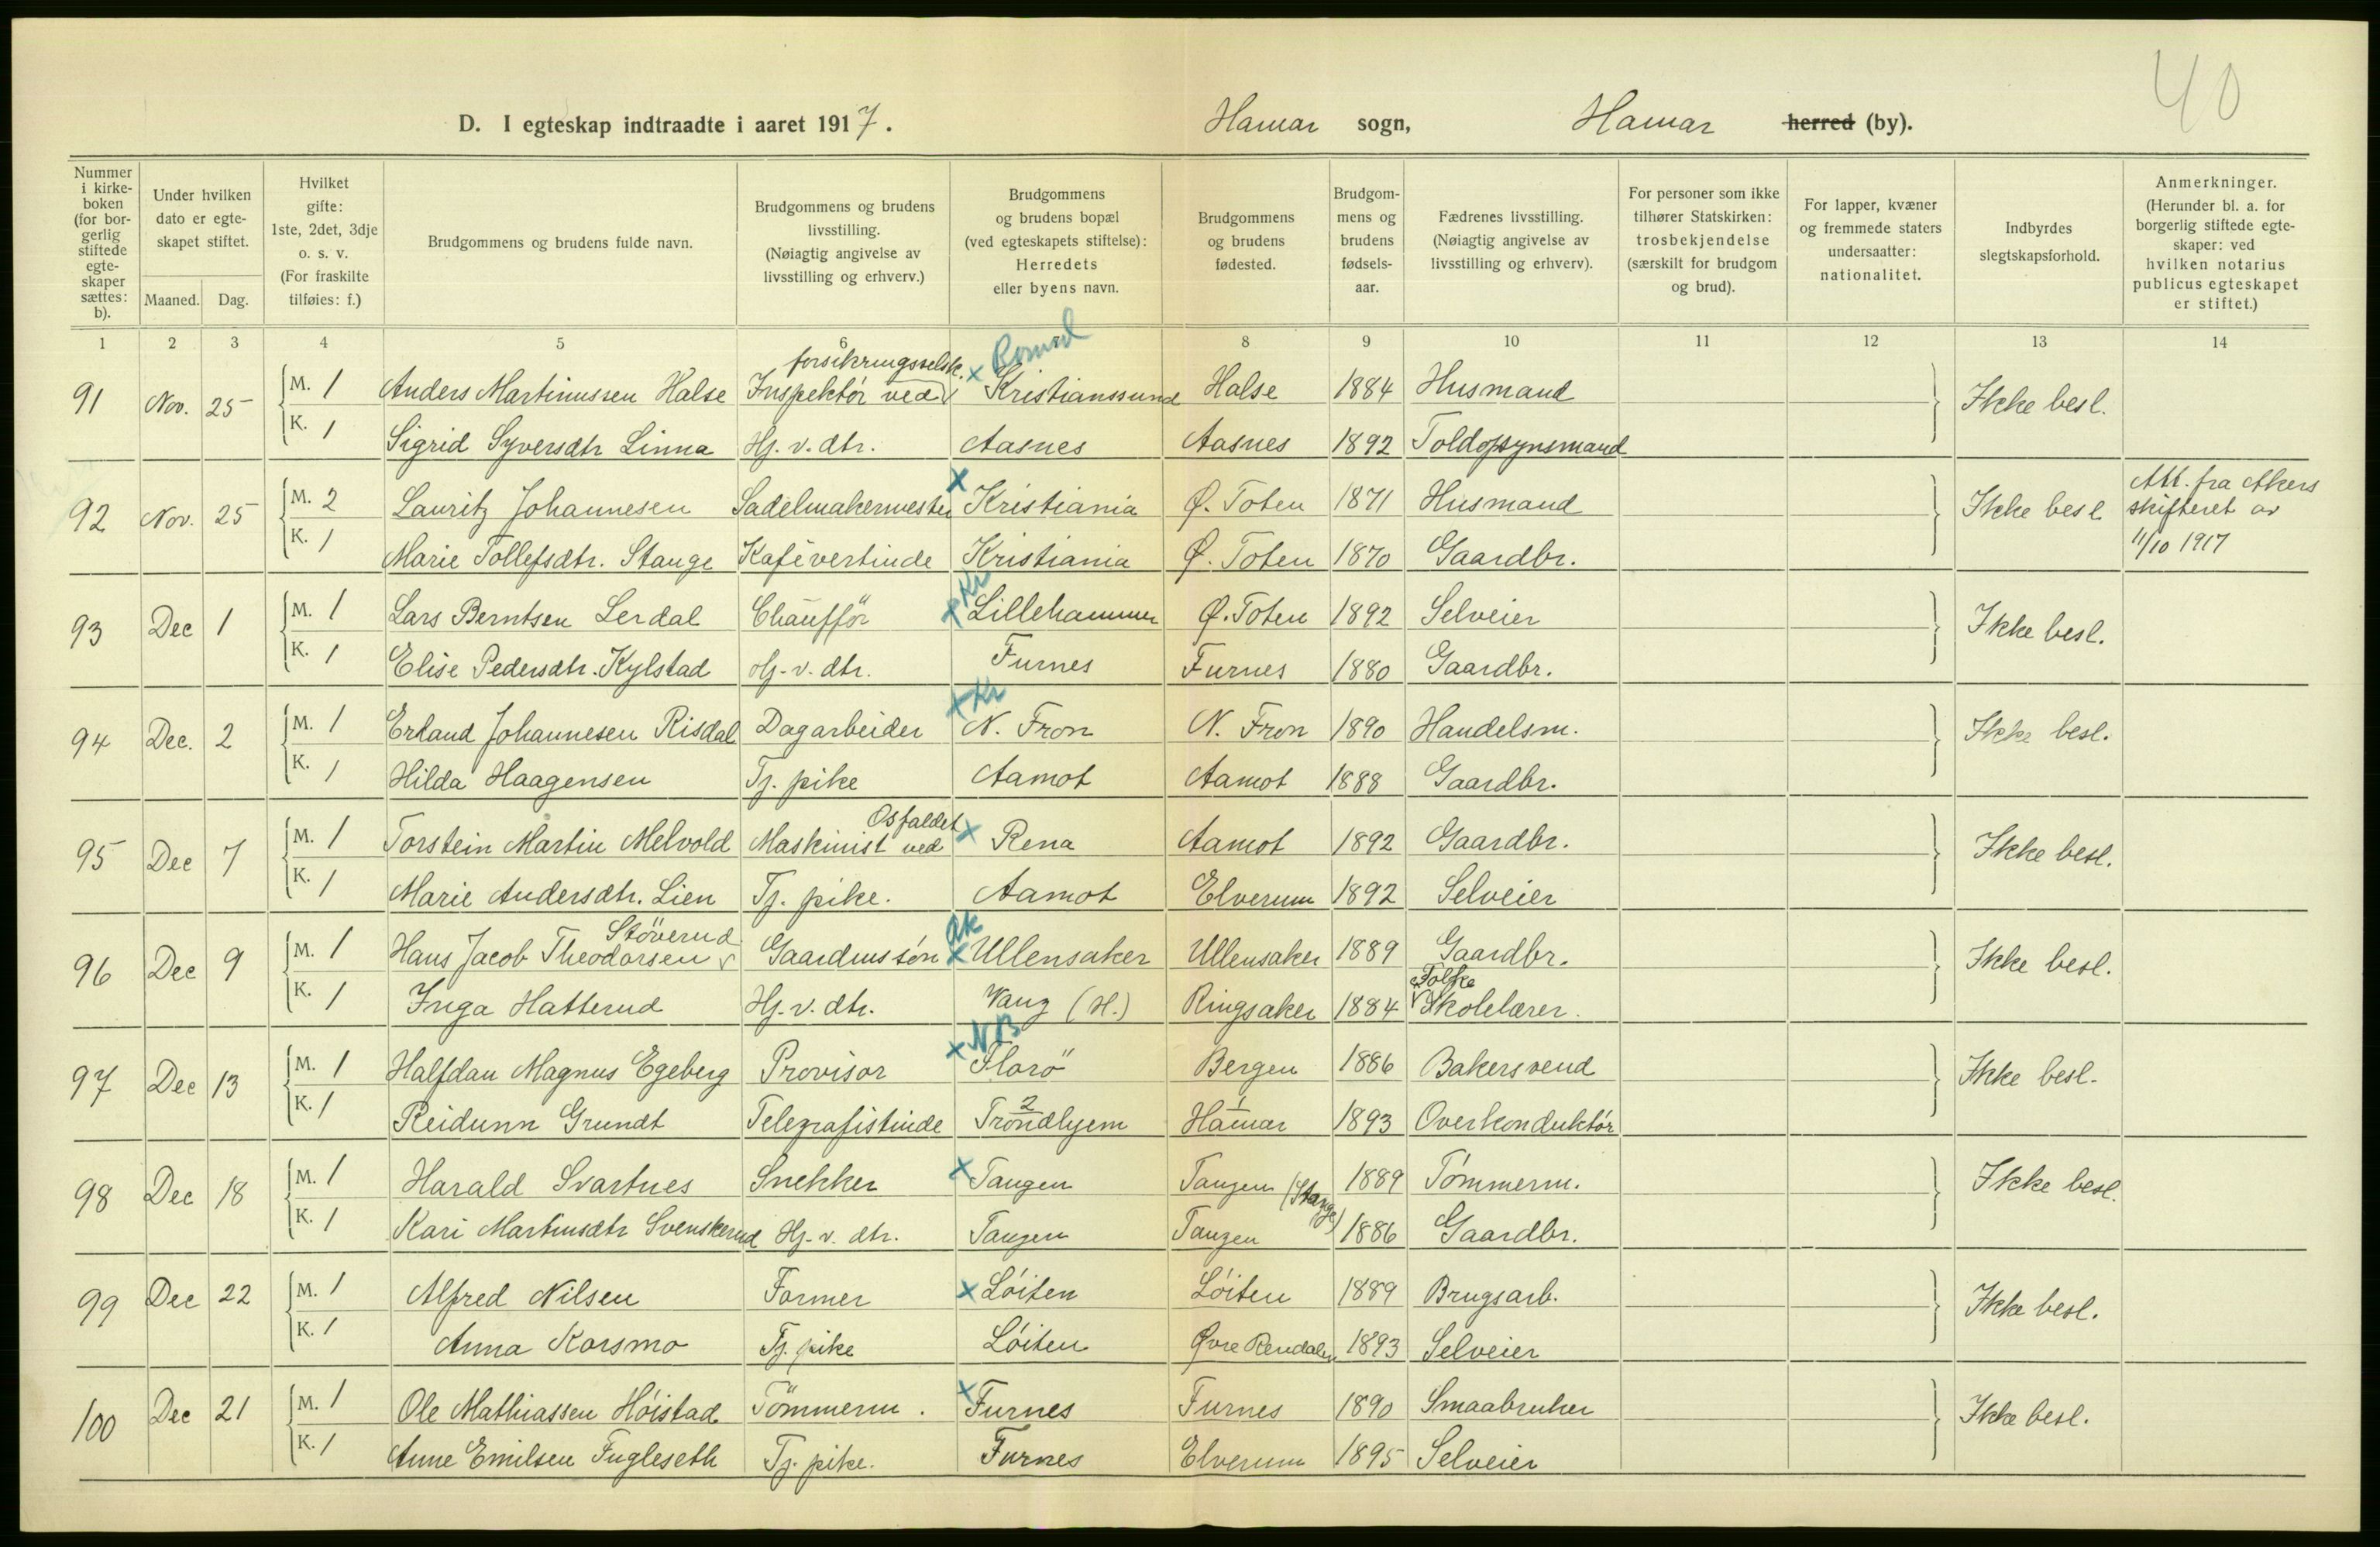 40
D. I egteskap indtraadte i aaret 1917. Hamar sogn, Hamar herred (by).
Nummer i kirkeboken (for borgerlig stiftede egteskaper sættes: b).
Under hvilken dato er egteskapet stiftet.
Maaned. Dag.
Hvilket gifte: 1ste, 2det, 3dje o. s. v. (For fraskilte tilføies: f.)
Brudgommens og brudens fulde navn.
Brudgommens og brudens livsstilling. (Nøiagtig angivelse av livsstilling og erhverv.)
Brudgommens og brudens bopæl (ved egteskapets stiftelse): Herredets eller byens navn.
Brudgommens og brudens fødested.
Brudgommens og brudens fødselsaar.
Fædrenes livsstilling. (Nøiagtig angivelse av livsstilling og erhverv).
For personer som ikke tilhører Statskirken: trosbekjendelse (særskilt for brudgom og brud).
For lapper, kvæner og fremmede staters undersaatter: nationalitet.
Indbyrdes slegtskapsforhold.
Anmerkninger. (Herunder bl. a. for borgerlig stiftede egteskaper: ved hvilken notarius publicus egteskapet er stiftet.)
1 2 3 4 5 6 8 9 10 11 12 13 14
forsikringsselsk. x Romsd
91 Nov. 25 M. 1 Anders Martinussen Halse Inspektør ved Kristianssund Halse 1884 Husmand Ikke besl.
K. 1 Sigrid Syversdtr Linna Hj. v. dtr. Aasnes Aasnes 1892 Toldopsynsmand
92 Nov. 25 M. 2 Lauritz Johannesen Sadelmakermester x Kristiania Ø. Toten 1871 Husmand Ikke besl Att. fra Akers skifteret av 11/10 1917
K. 1 Marie Tollefsdtr. Stange Kafévertinde Kristiania Ø. Toten 1870 Gaardbr.
93 Dec 1 M. 1 Lars Berntsen Lerdal Chaufför x Kr Lillehammer Ø. Toten 1892 Selveier Ikke besl.
K. 1 Elise Pedersdtr. Kylstad Hj. v. dtr. Furnes Furnes 1880 Gaardbr.
94 Dec. 2 M. 1 Erland Johannesen Risdal Dagarbeider x Kr N. Fron N. Fron 1890 Handelsm. Ikke besl.
K. 1 Hilda Haagensen Tj. pike Aamot Aamot 1888 Gaardbr.
95 Dec 7 M. 1 Torstein Martin Melvold Maskinist ved Osfaldet x Rena Aamot 1892 Gaardbr. Ikke besl.
K. 1 Marie Andersdtr. Lien Tj. pike. Aamot Elverum 1892 Selveier
96 Dec 9 M. 1 Hans Jacob Theodorsen Støverud Gaardmssøn x Ak Ullensaker Ullensaker 1889 Gaardbr. Ikke besl.
K. 1 Inga Hatterud Hj. v. dtr. Vang (H.) Ringsaker 1884 Folke Skolelærer.
97 Dec 13 M. 1 Halfdan Magnus Egeberg Provisor x NB Florö Bergen 1886 Bakersvend Ikke besl.
K. 1 Reidunn Grundt Telegrafistinde 2 Trondhjem 1 Hamar 1893 Overkonduktør
98 Dec 18 M. 1 Harald Svartnes Snekker x Tangen Tangen (Stange) 1889 Tømmerm. Ikke besl.
K. 1 Kari Martinsdtr Svenskerud Hj. v. dtr. Tangen Tangen 1886 Gaardbr.
99 Dec 22 M. 1 Alfred Nilsen Former x Løiten Løiten 1889 Brugsarb. Ikke besl.
K. 1 Anna Korsmo Tj. pike Løiten Øvre Rendalen 1893 Selveier
100 Dec 21 M. 1 Ole Mathiassen Høistad Tömmerm. x Furnes Furnes 1890 Smaabruker Ikke besl.
K. 1 Anne Emilsen Fugleseth Tj. pike. Furnes Elverum 1895 Selveier